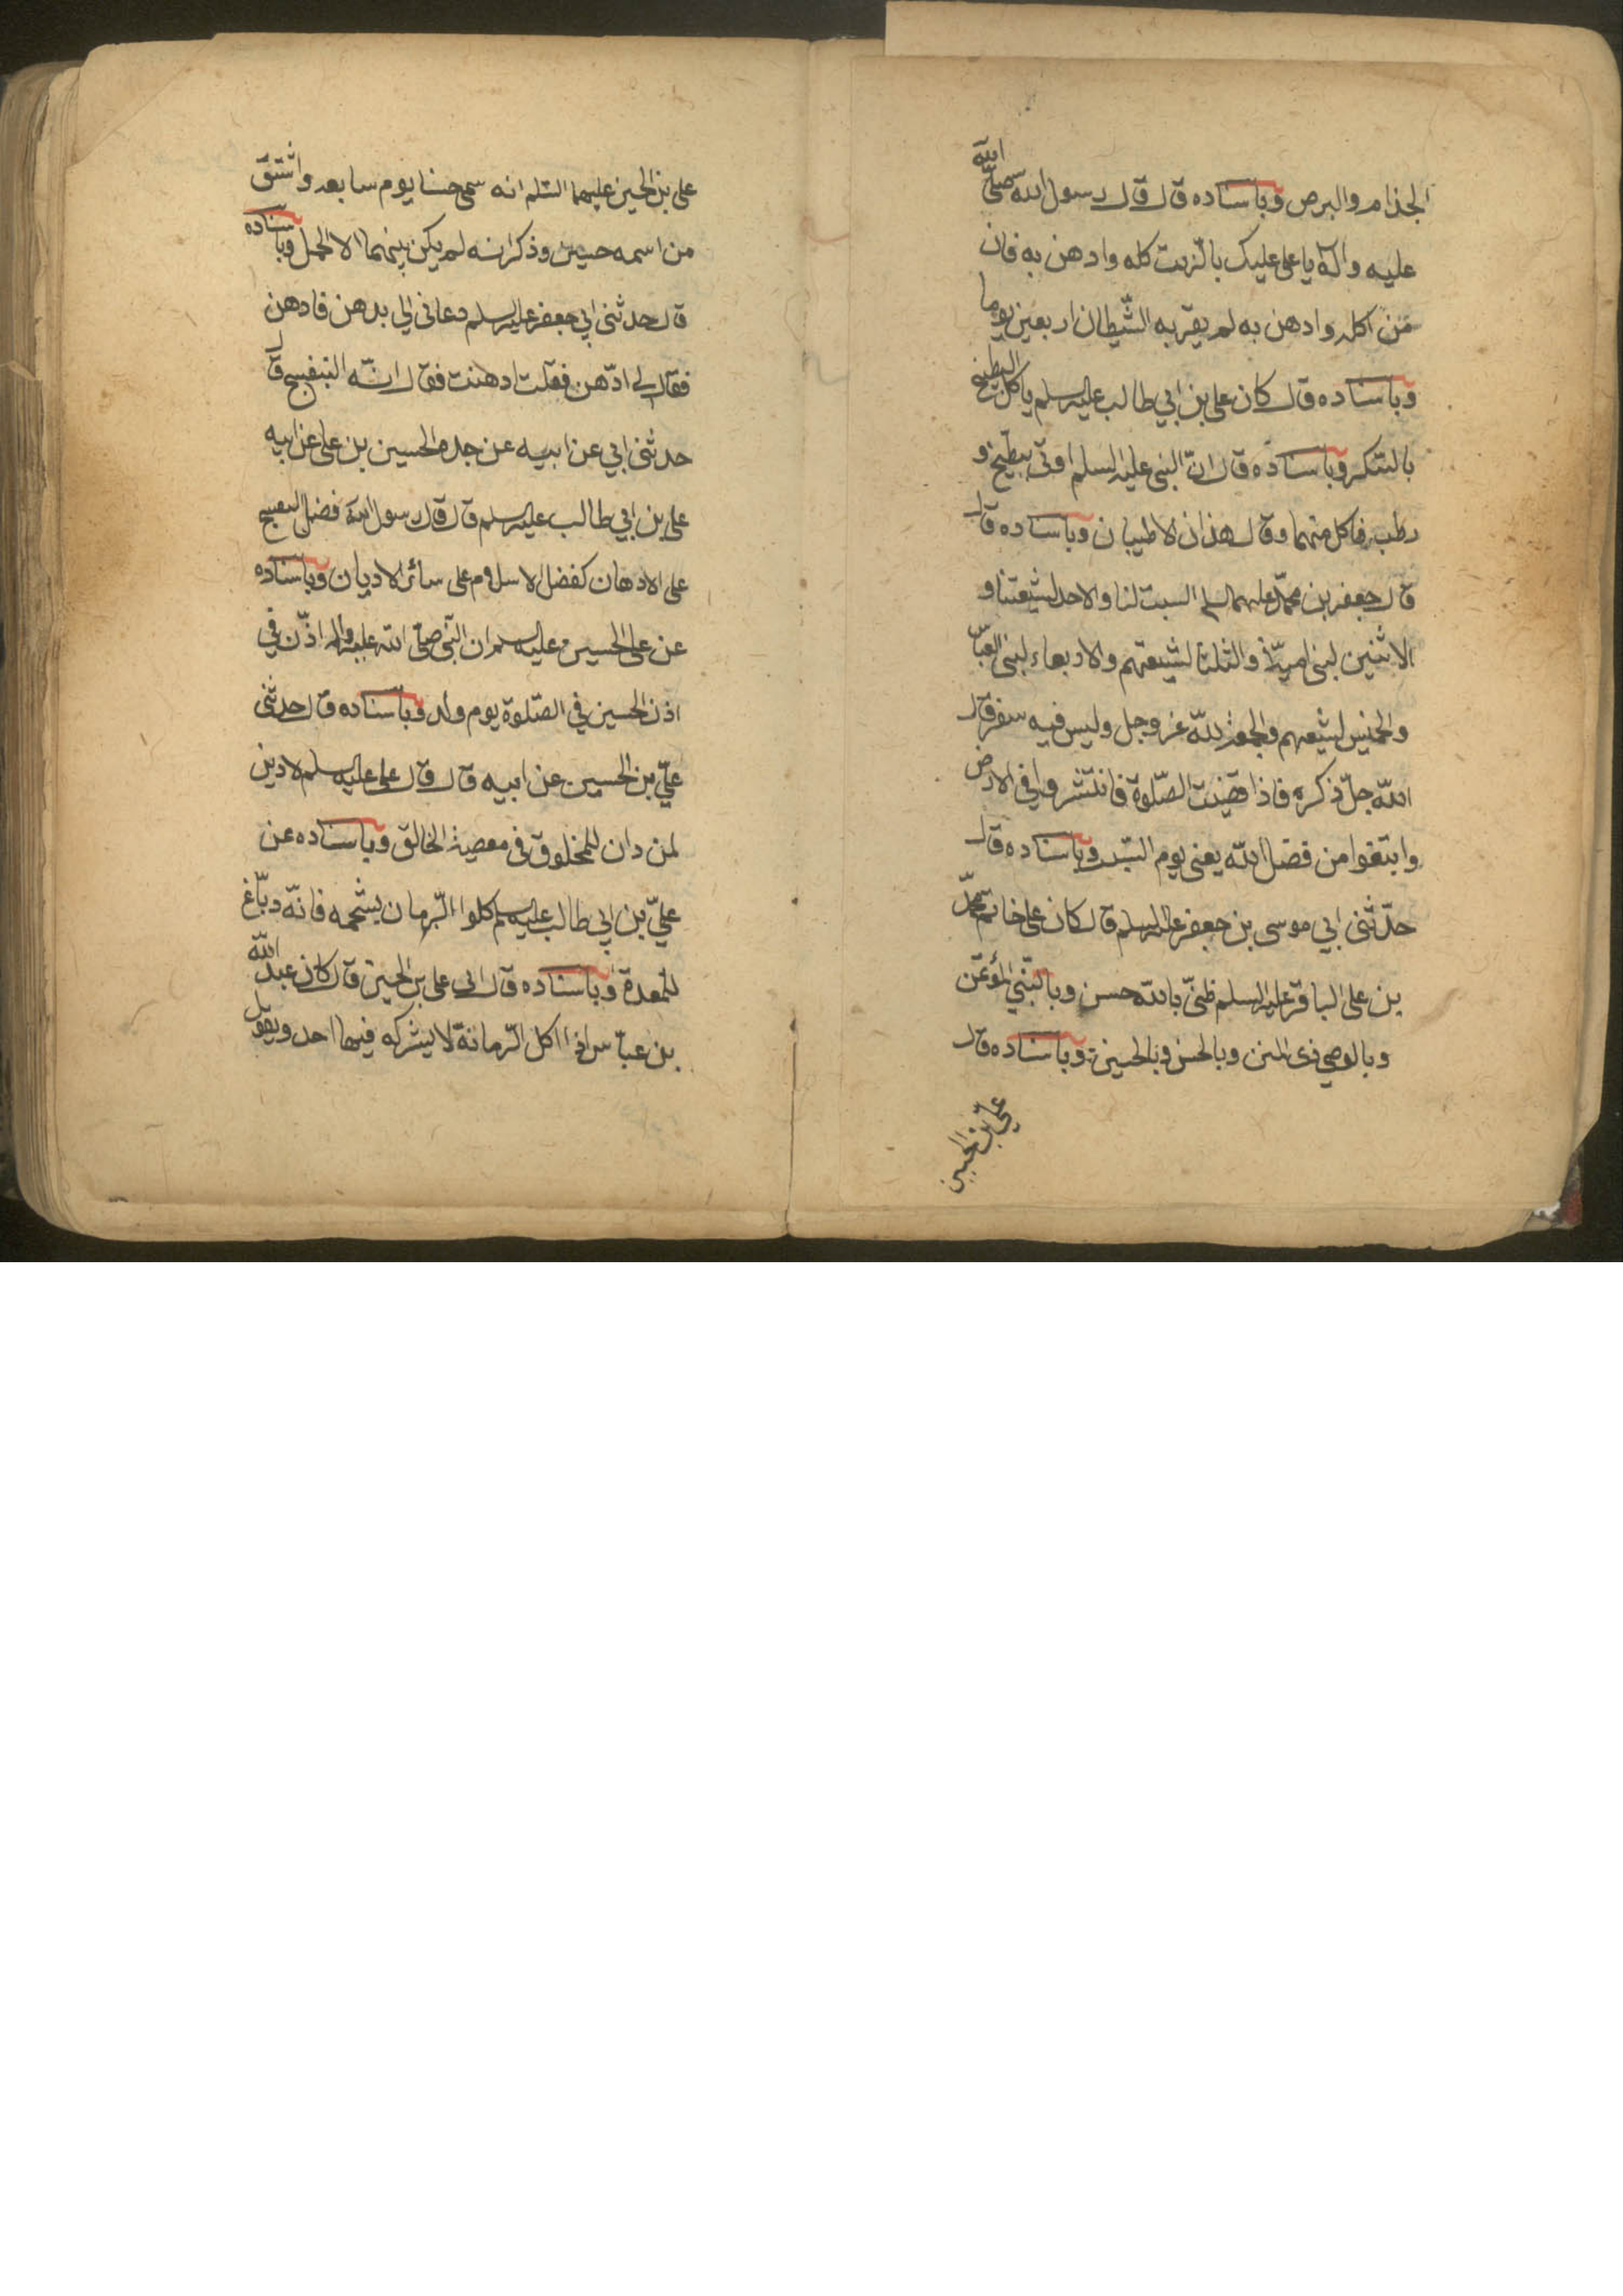 الجذام والبرص وباسناده قال قال رسول الله صلى الله
عليه واله يا على عليك بالزيت كله وادهن به فان
من اكله وادهن به لم يقربه الشيطان اربعين يوما
وباسناده قال كان على بن ابي طالب عليه السلم ياكل البطيخ
بالسكر وباسناده قال ان النبى عليه السلم اوتى ببطيخ و
رطب فاكل منهما وقال هذان الاطيبان وباسناده قال
قال جعفر بن محمد عليهما السلم السبت لنا والاحد لشيعتنا و
الاثنين لبنى امية والثلثا لشيعتهم والاربعاء لبنى العباس
والخميس لشيعتهم والجمعة لله عز وجل وليس فيه سفر قال
الله جل ذكره فاذا قضيت الصلوة فانتشروا في الارض
وابتغوا من فضل الله يعنى يوم السبت وباسناده قال
حدثنى ابي موسى بن جعفر عليه السلم قال كان على خاتم محمد
بن على الباقر عليه السلم ظنى بالله حسن وبالنبي المؤتمن
وبالوصي ذى المنن وبالحسن وبالحسين وباسناده قال
على بن الحسين
على بن الحسين عليهما السلم انه سمى حسنا يوم سابعه واشتق
من اسمه حسين وذكر انه لم يكن بينهما الا الحمل وباسناده
قال حدثنى ابي جعفر عليه السلم دعانى ابي بدهن فادهن
فقال لي ادهن فقلت ادهنت فقال انه البنفسج قال
حدثنى ابي عن ابيه عن جده الحسين بن على عن ابيه
على بن ابي طالب عليه السلم قال قال رسول الله فضل البنفسج
على الادهان كفضل الاسلام على سائر الاديان وباسناده
عن على الحسين عليه السلم ان النبى صلى الله عليه واله اذن في
اذن الحسين في الصلوة يوم ولد وباسناده قال حدثنى
علي بن الحسين عن ابيه قال قال على عليه السلم لا دين
لمن دان للمخلوق في معصية الخالق وباسناده عن
علي بن ابي طالب عليه السلم كلوا الرمان بشحمه فانه دباغ
للمعدة وباسناده قال ابى على بن الحسين قال كان عبد الله
بن عباس اذا اكل الرمانة لا يشركه فيها احد ويقول